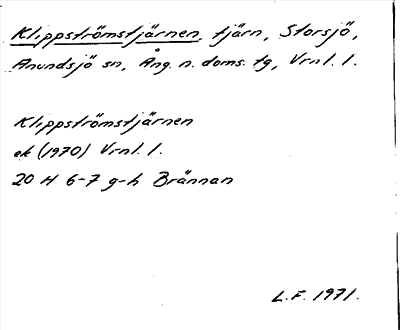 Klippströmstjärnen, tjärn, Storsjö,
Anundsjö sn, Ång. n. doms. tg, Vrnl. l.
Klippströmstjärnen
ek (1970) Vrnl. l.
20 H 6-7 g-h Brännan
L.F. 1971.